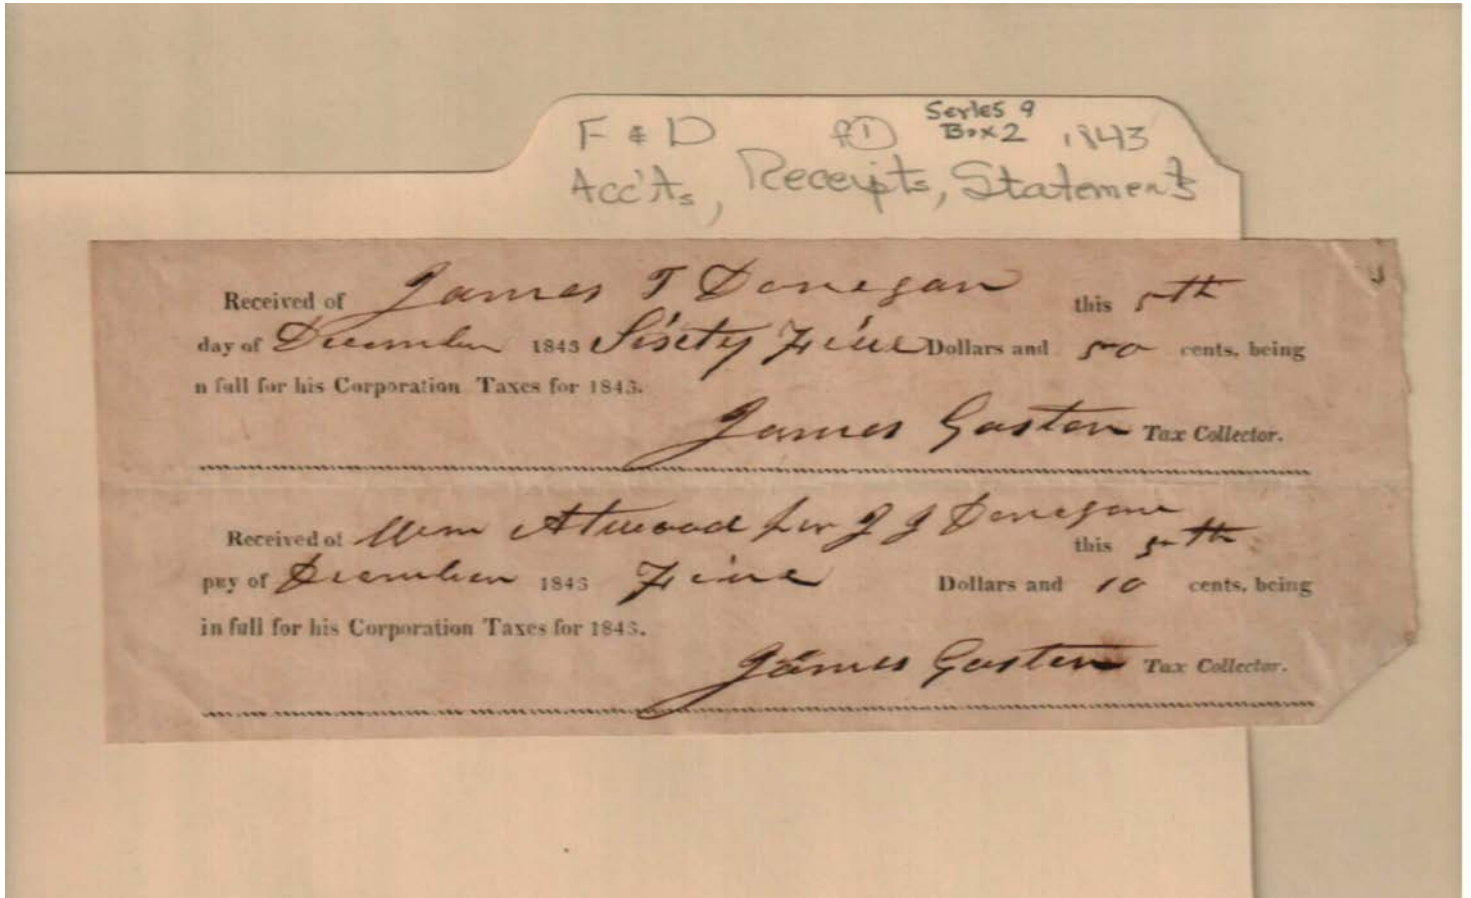 F & D f① Series 9 Box 2 1843
Acc'ts, Receipts, Statements
Received of James J Donegan this 5th
day of December 1843 Sixty Five Dollars and 50 cents, being
n full for his Corporation Taxes for 1843.
James Gaston Tax Collector.
Received of Wm Atwood for J J Donegan this 5th
pay of December 1843 Five Dollars and 10 cents, being
in full for his Corporation Taxes for 1843.
James Gaston Tax Collector.